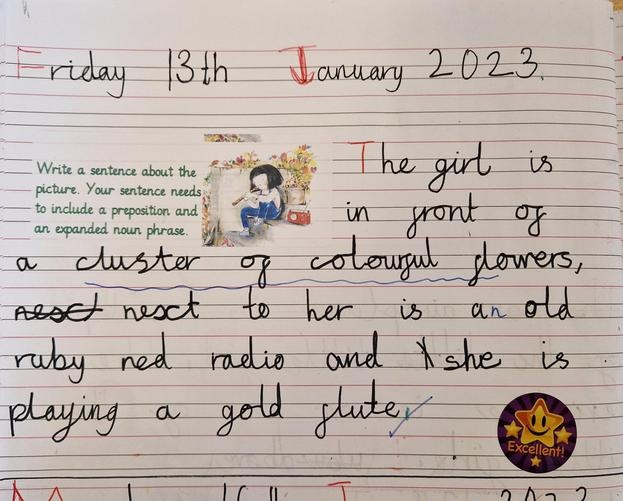 Friday 13th January 2023.
Write a sentence about the
picture. Your sentence needs
to include a preposition and
an expanded noun phrase.
The girl is
in front of
a cluster of colourful flowers,
next next to her is an old
ruby ned radio and she is
playing a gold flute.
Excellent!